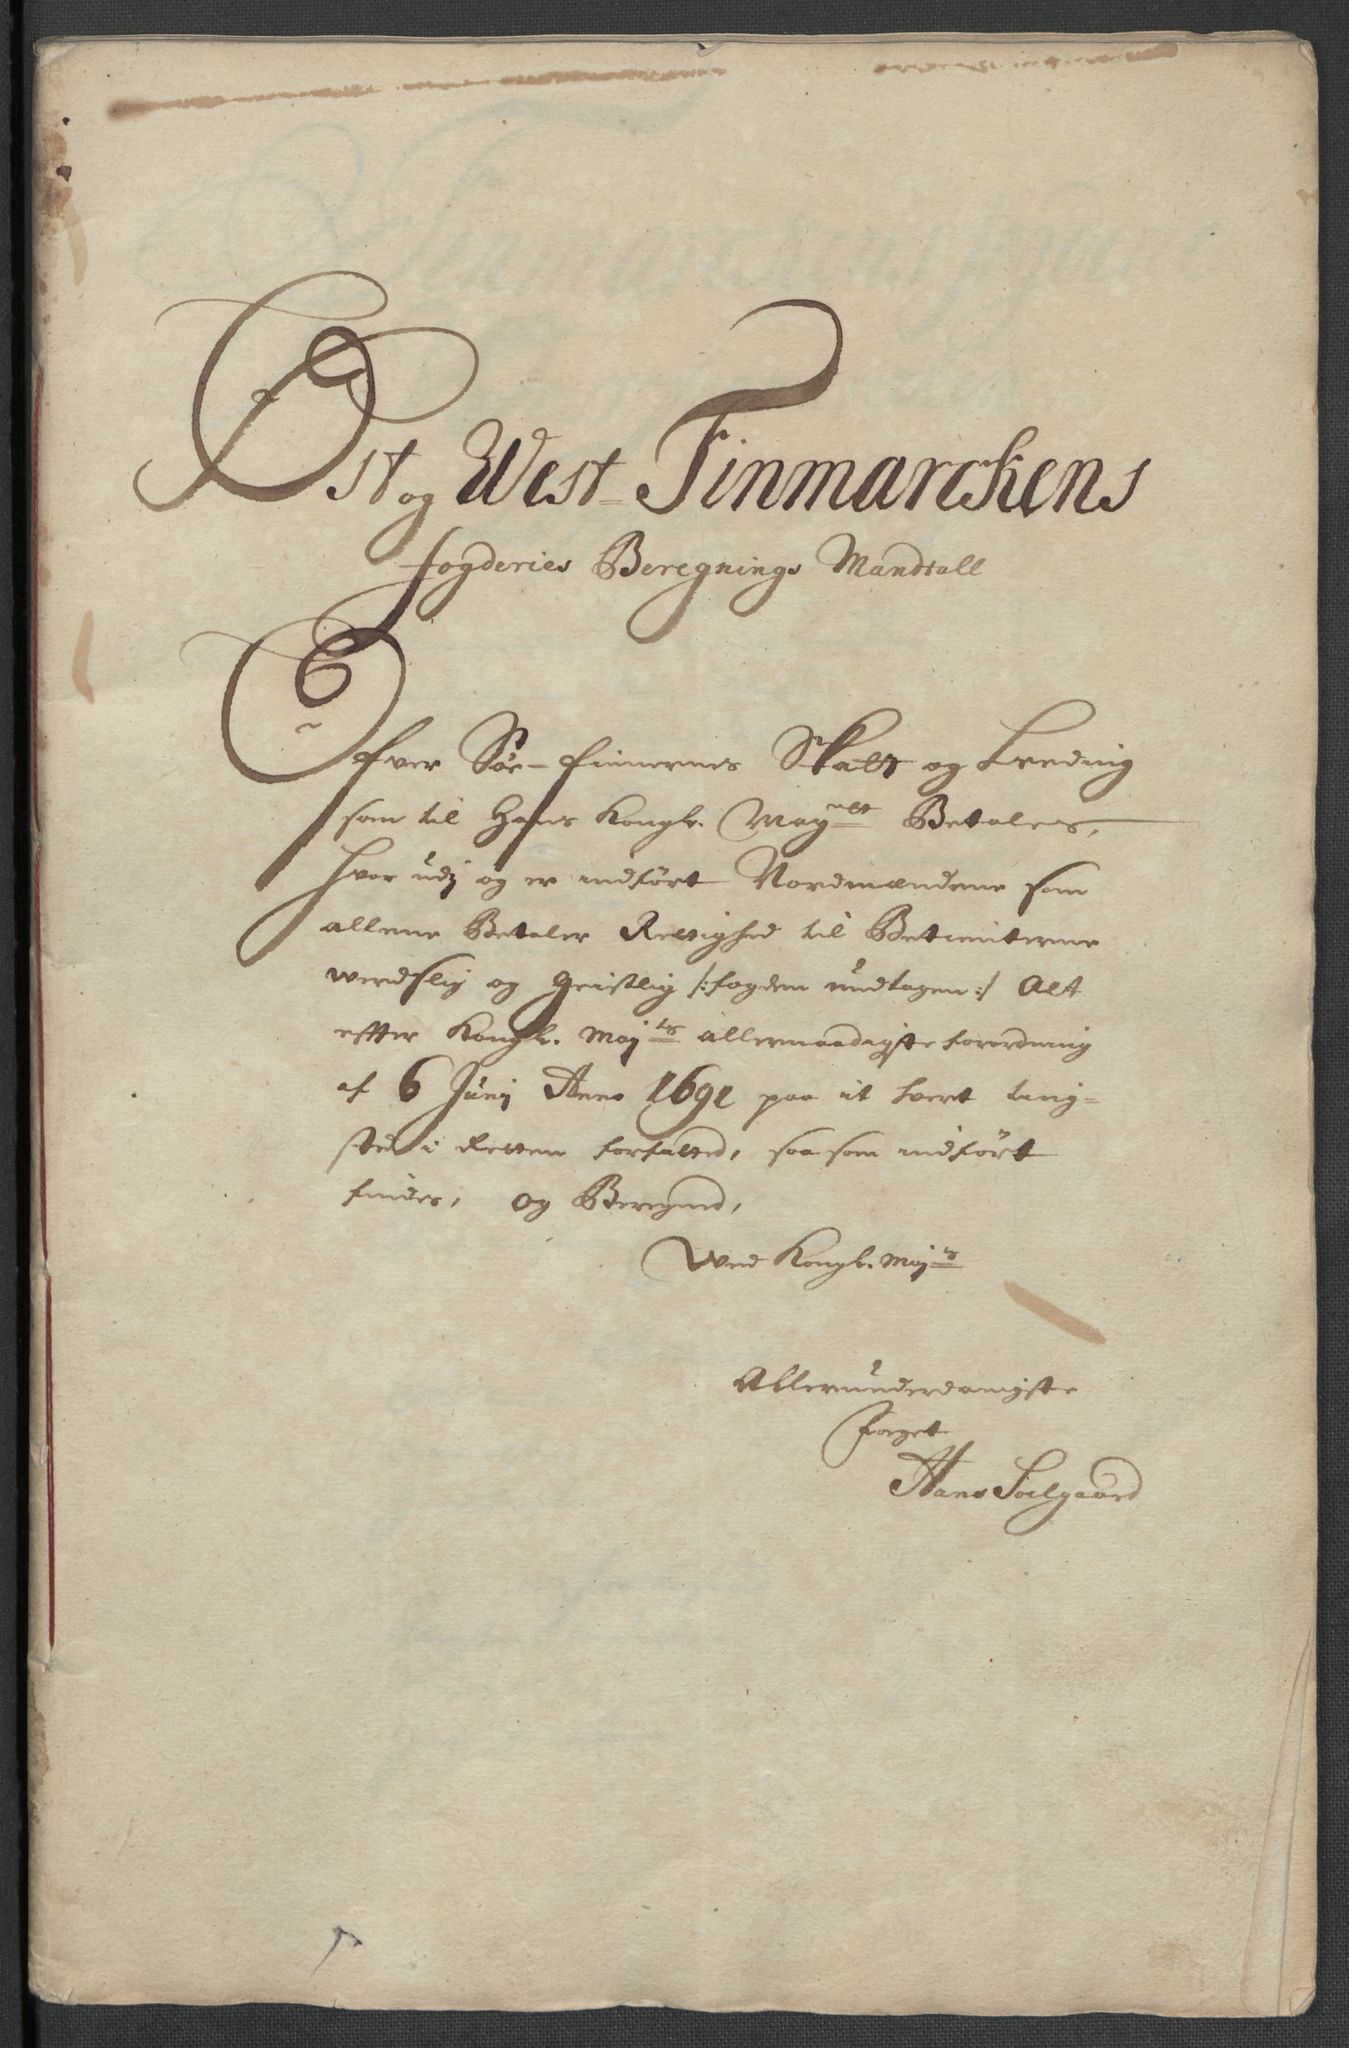 Øst og West-Finmarckens
fogderies Beregnings Mandtall
Ofver Søe-finnernes Skatt og Leeding
som til Hans Kongl. Mayㅤtt Betales,
hvor udj og er indført Nordmændene som
allene Betaler Rettighed til Betienterne
werdslig og Geistlig /:fogden undtagen:/ Alt
efter Kongl. Maj.ts allernaadigste forordning
af 6 Junj Anno 1691 paa it hvert ting-
sted i Retten forfatted, saa som indført
findes, og Beregned,
Wed Kongl. Maj.ts
Allerunderdanigste
foeget
Hans Soelgaard